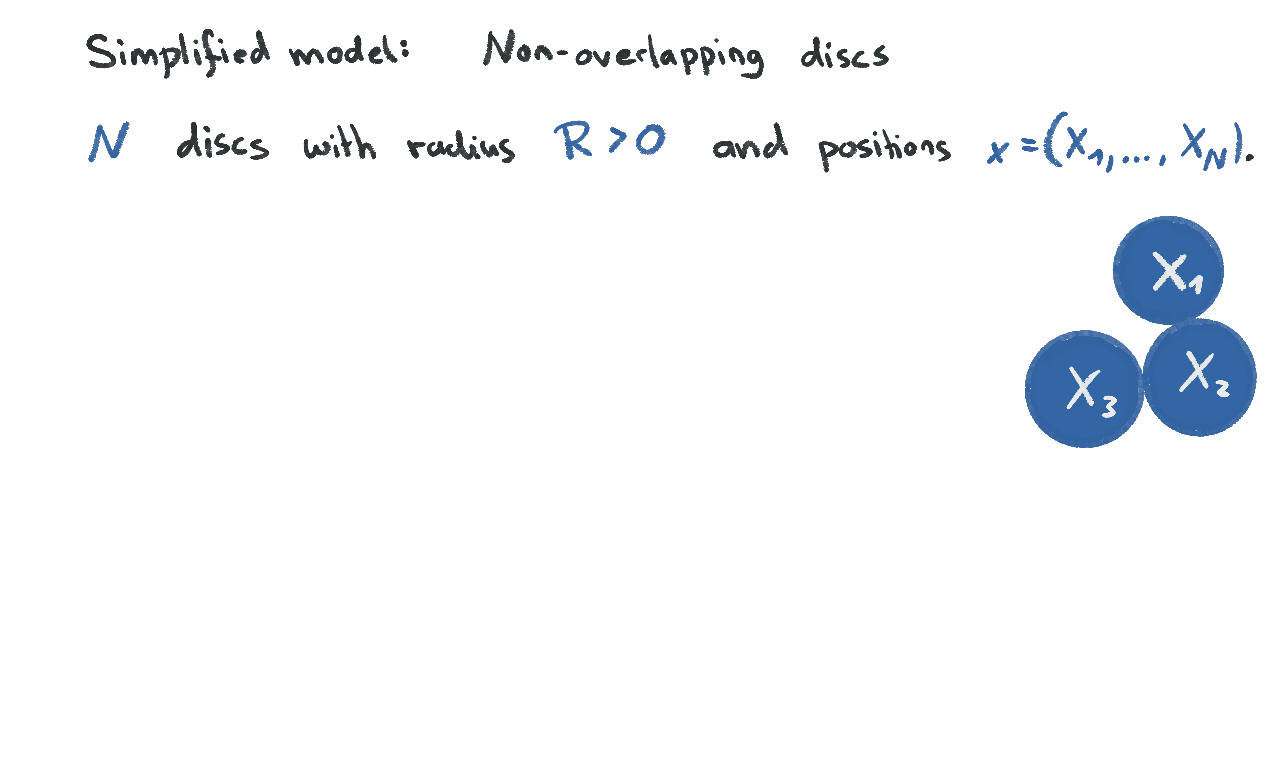 Simplified model: Non-overlapping discs
N discs with radius R > 0 and positions x = (X₁, ..., X_N).
X₁
X₃ X₂